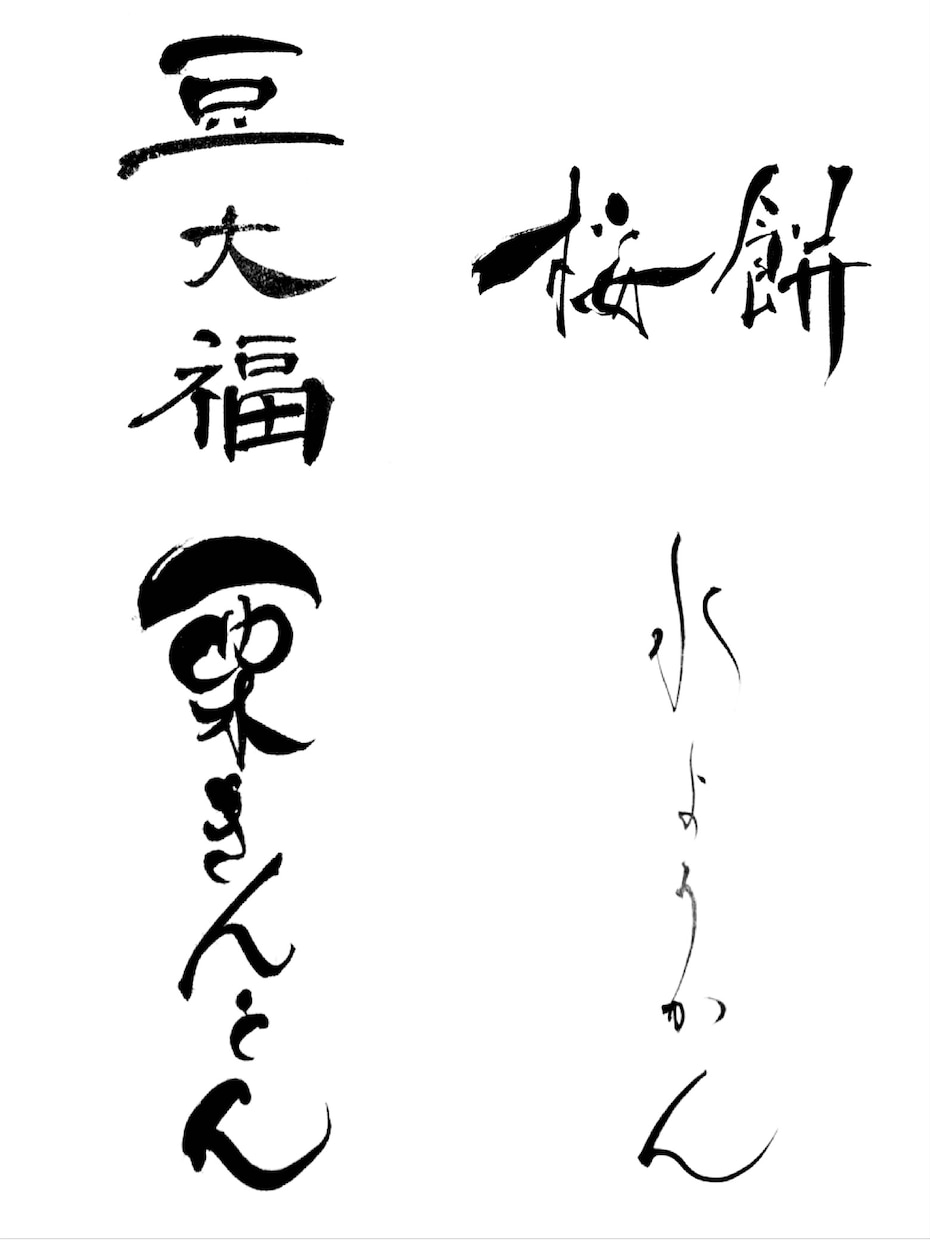 豆大福
桜餅
栗きんとん
水ようかん